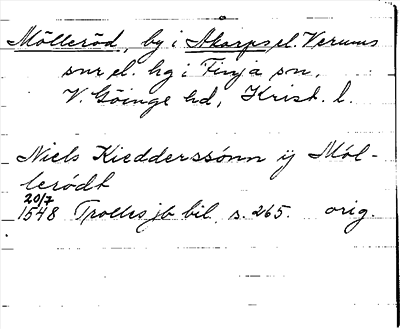 Mölleröd, by i Akarps el. Verums
snr el. hg i Finja sn.
V. Göinge hd, Krist. l.
Niels Kiedderssónn ij Mól-
leródt
20/7
1548 Trolles jb bil. s. 265. orig.